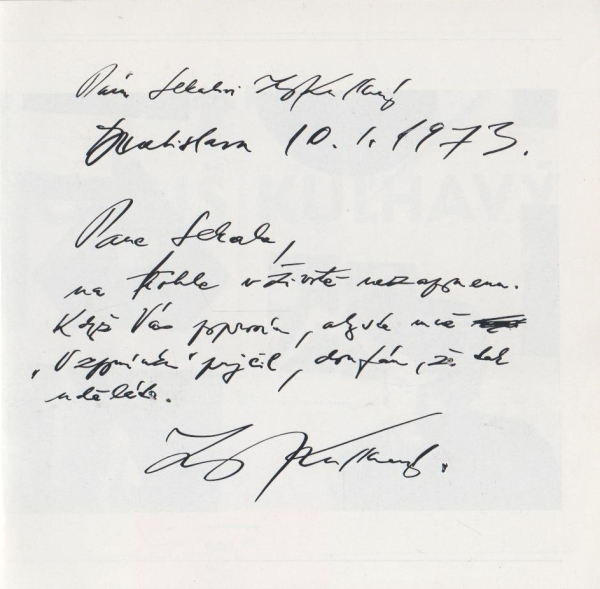 Pánu Sekalovi Z. Kulhavý
Bratislava 10. 1. 1973.
Pane Sekale,
na tohle v životě nezapomenu.
Když Vás poprosím, abyste mně
"Vzpomínku" půjčil, doufám, že tak
uděláte.
Z. Kulhavý.
KULHAVÝ